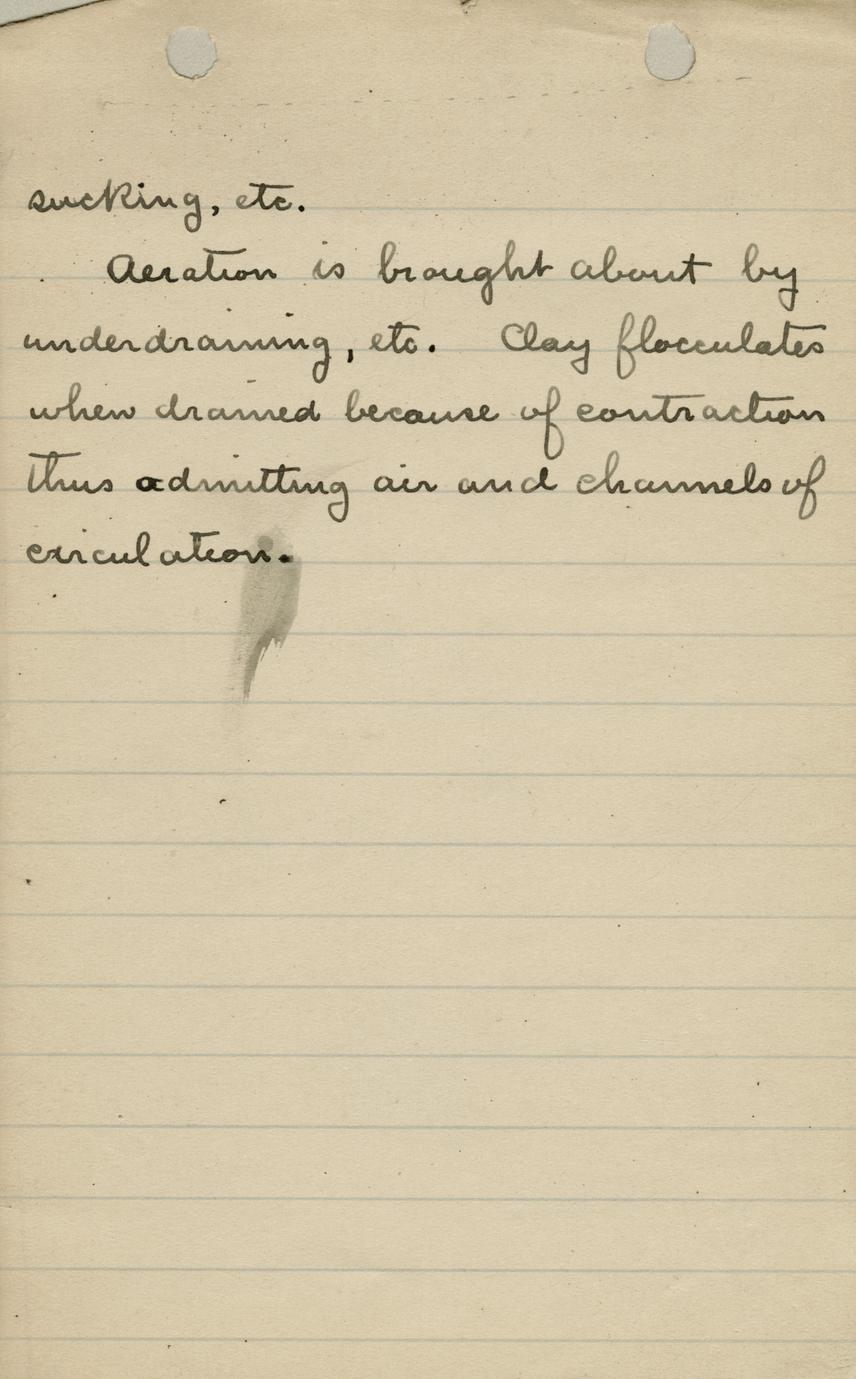 sucking, etc.
Aeration is brought about by
underdraining, etc. Clay flocculates
when drained because of contraction
thus admitting air and channels of
circulation.